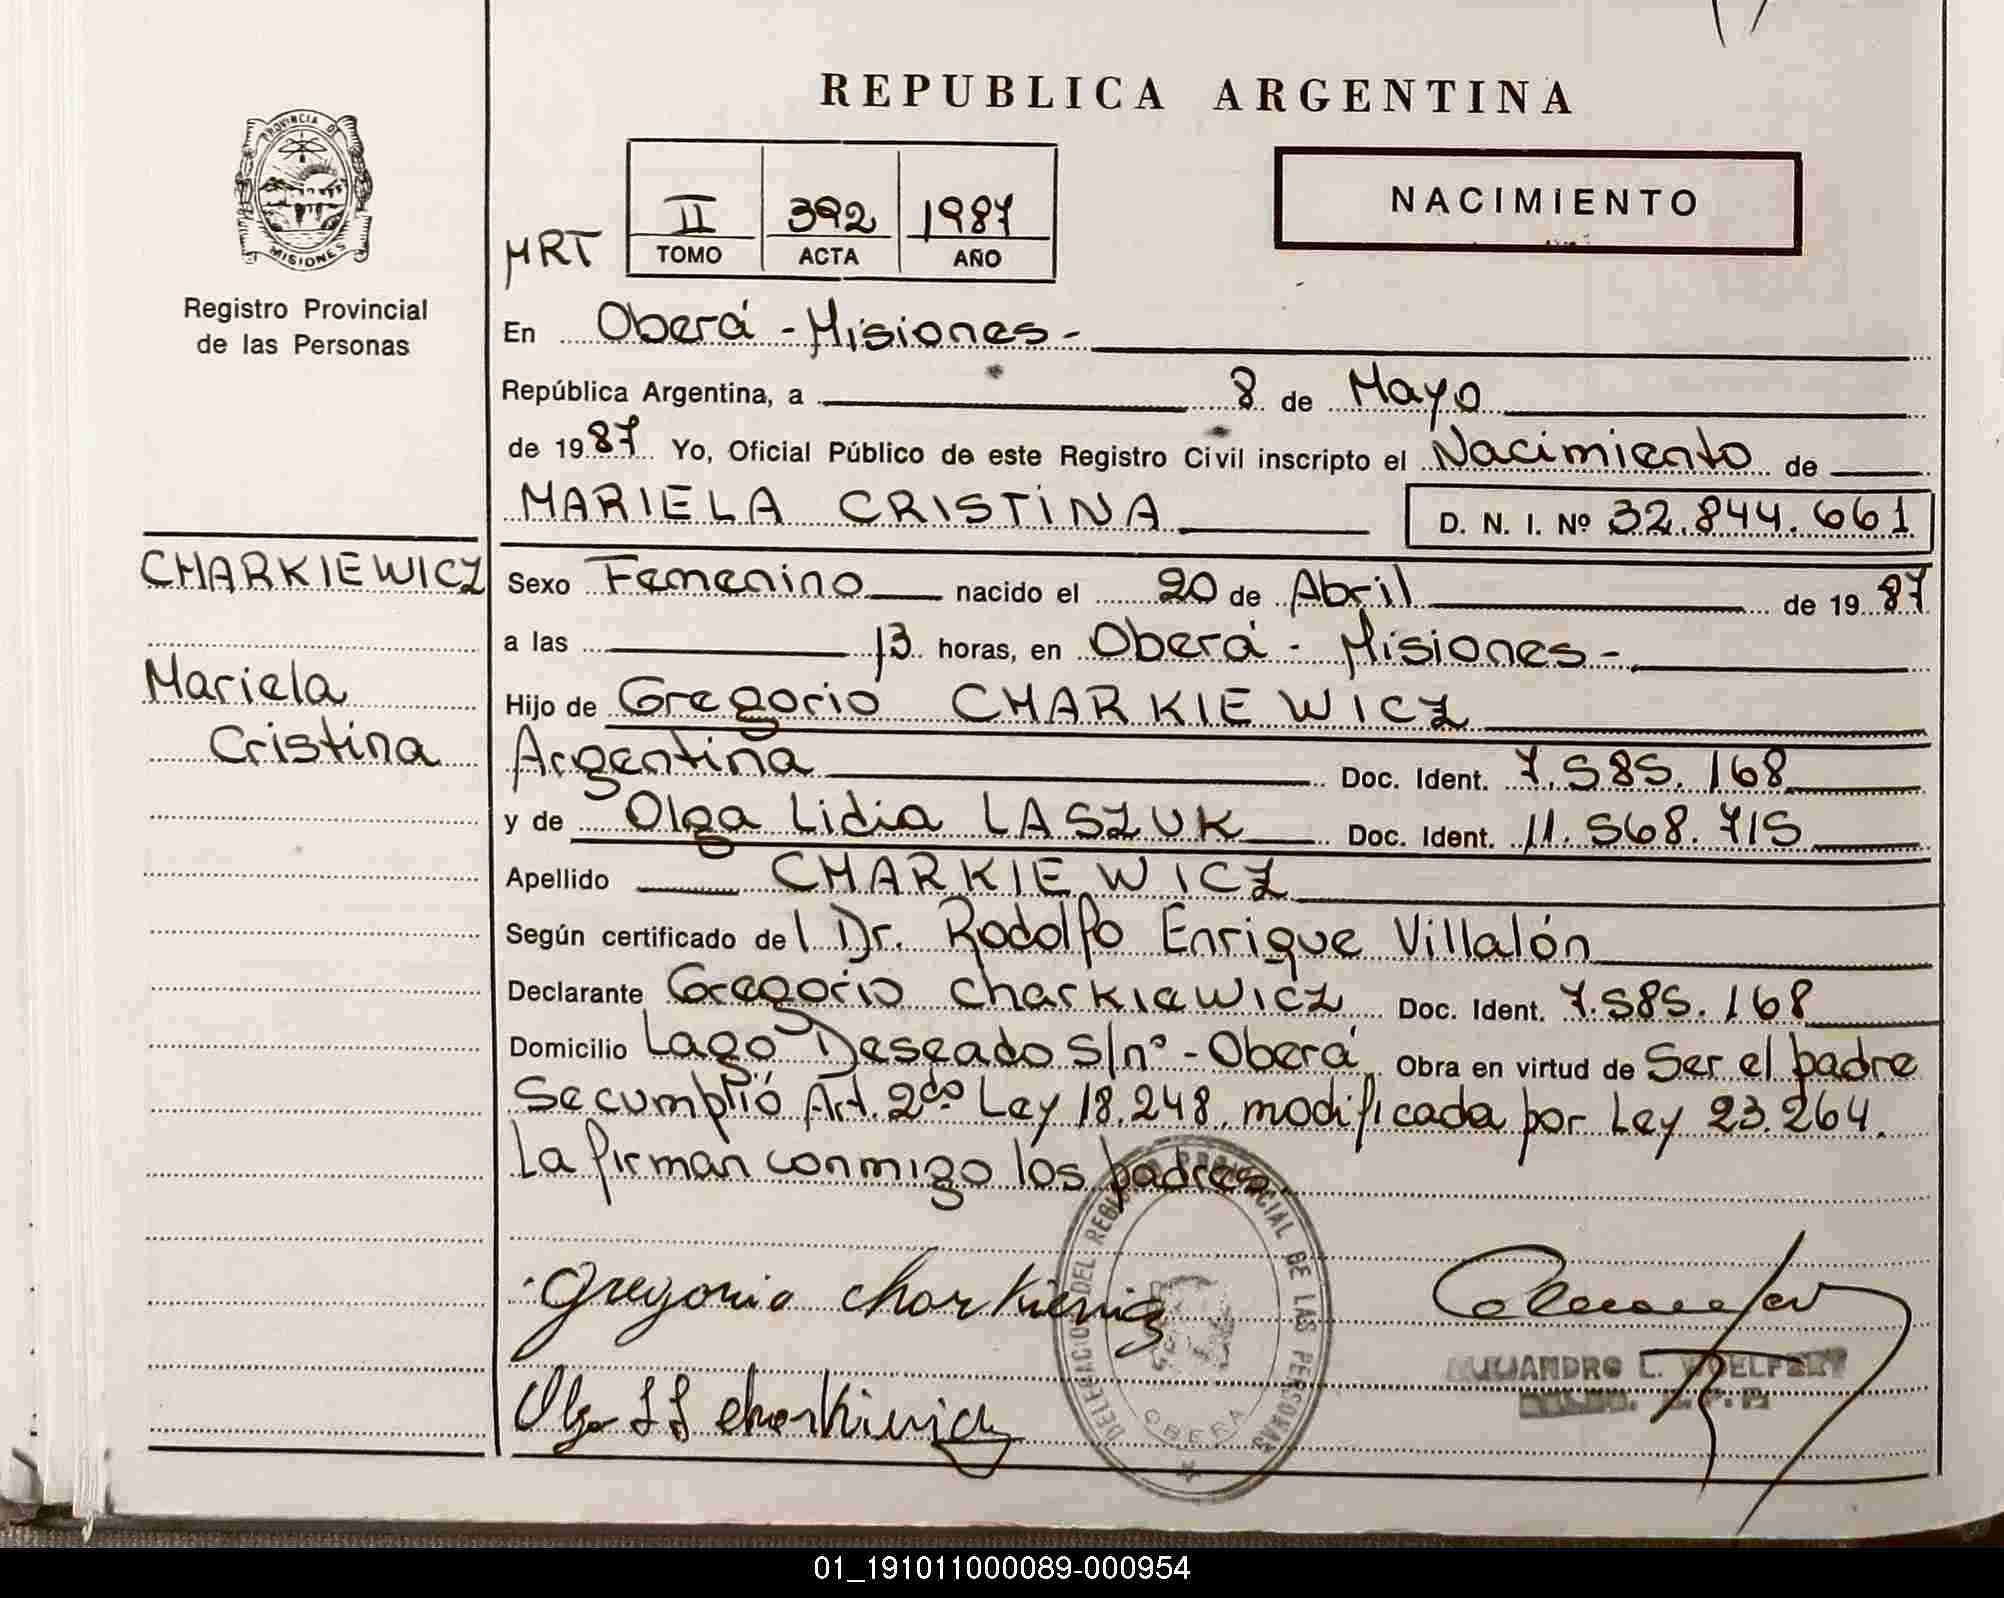 REPUBLICA ARGENTINA
PROVINCIA DE
MISIONES
Registro Provincial
de las Personas
NACIMIENTO
II 392 1987
MRT TOMO ACTA AÑO
En Oberá - Misiones -
República Argentina, a 8 de Mayo
de 1987 Yo, Oficial Público de este Registro Civil inscripto el Nacimiento de
MARIELA CRISTINA D. N. I. Nº 32.844.661
CHARKIEWICZ
Mariela
Cristina
Sexo Femenino nacido el 20 de Abril de 1987
a las 13 horas, en Oberá - Misiones -
Hijo de Gregorio CHARKIEWICZ
Argentina Doc. Ident. 7.585.168
y de Olga Lidia LASZUK Doc. Ident. 11.568.715
Apellido CHARKIEWICZ
Según certificado del Dr. Rodolfo Enrique Villalón
Declarante Gregorio Charkiewicz Doc. Ident. 7.585.168
Domicilio Lago Deseado s/nº - Oberá Obra en virtud de Ser el padre
Se cumplió Art. 2do Ley 18.248, modificada por Ley 23.264.
La firman conmigo los padres.
Gregorio Charkiewicz
Olga charkiewicz
DELEGACION DEL REGISTRO PROVINCIAL DE LAS PERSONAS
OBERA
ALEJANDRO L. WOELFERT
01_191011000089-000954